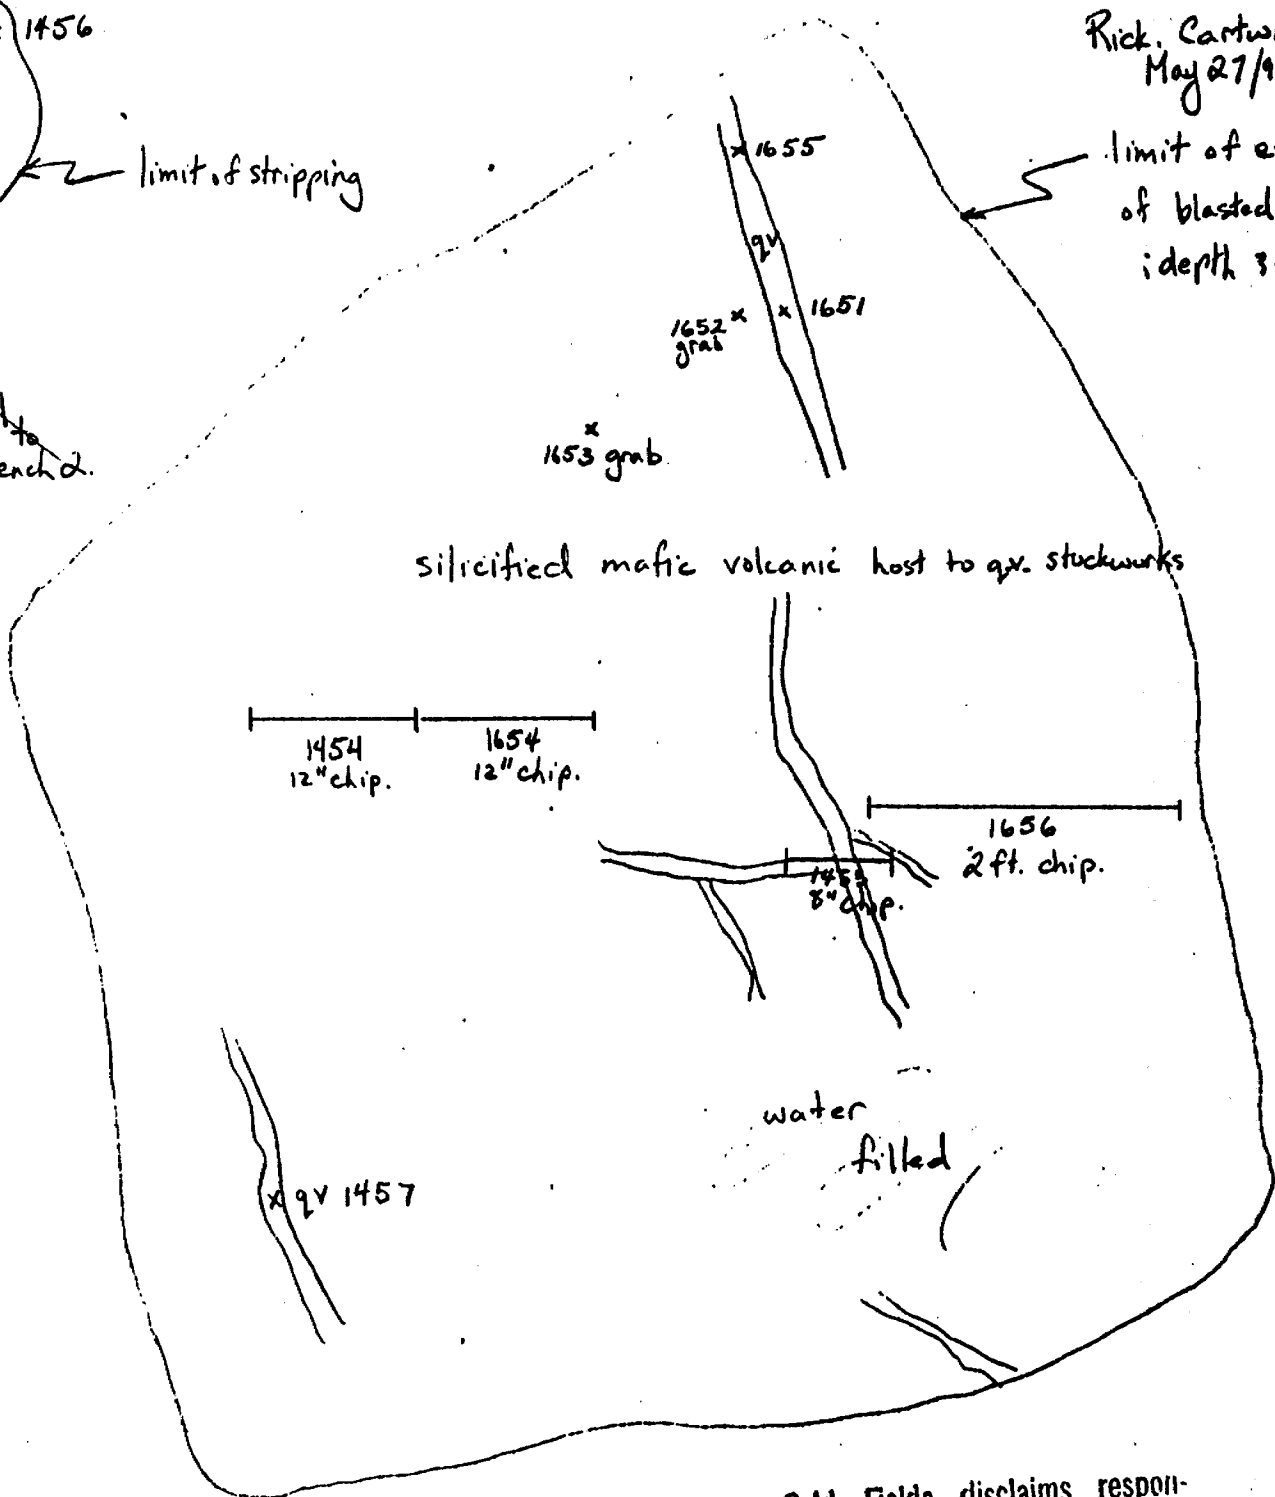 1456
Rick. Cartw
May 27/9
limit of stripping
limit of e
of blasted
; depth 3
1655
qv
1651
1652
grab
1653 grab
to
ench 2.
silicified mafic volcanic host to q.v. stockworks
1454
12" chip.
1654
12" chip.
1656
2 ft. chip.
1455
8" chip.
water
filled
qv 1457
Fields disclaims respon-